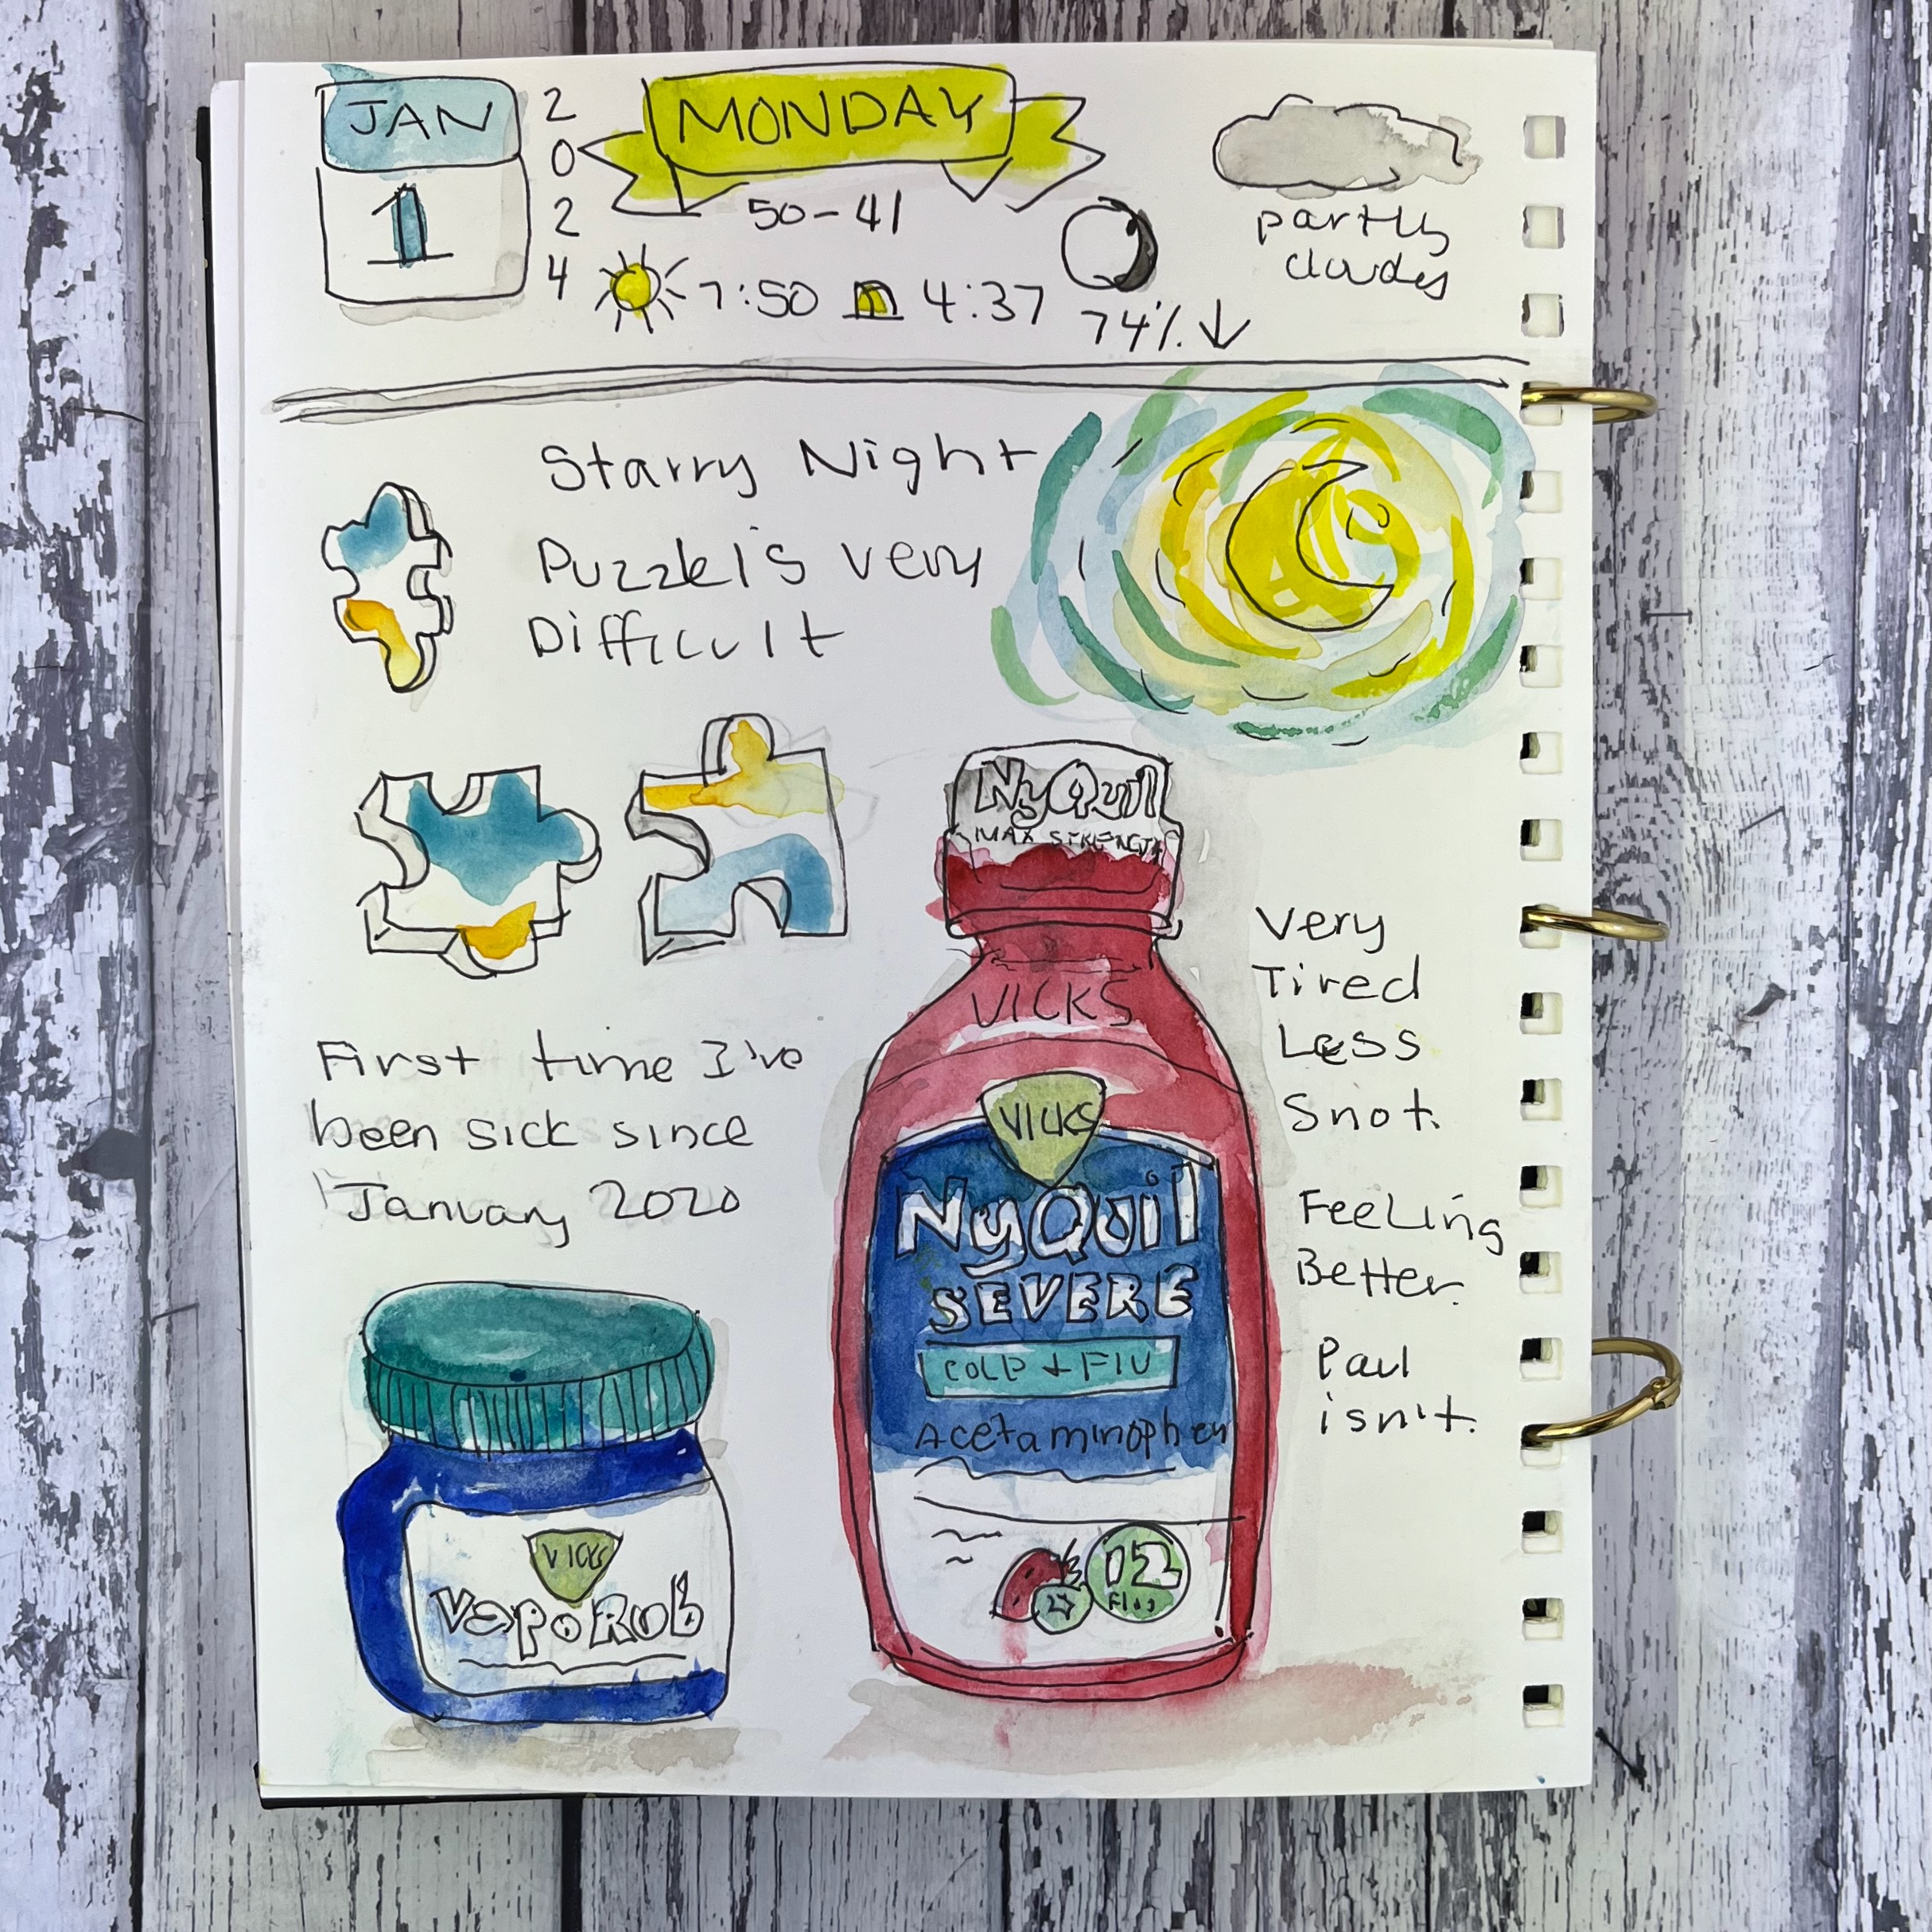 JAN
1
2
0
2
4
MONDAY
50-41
7:50 4:37
74% ↓
partly
cloudy
Starry Night
Puzzle is very
Difficult
NyQuil
MAX STRENGTH
VICKS
VICKS
NyQuil
SEVERE
COLD + FLU
Acetaminophen
12
Very
Tired
Less
Snot.
Feeling
Better.
Paul
isn't.
First time I've
been sick since
January 2020
VICKS
VapoRub